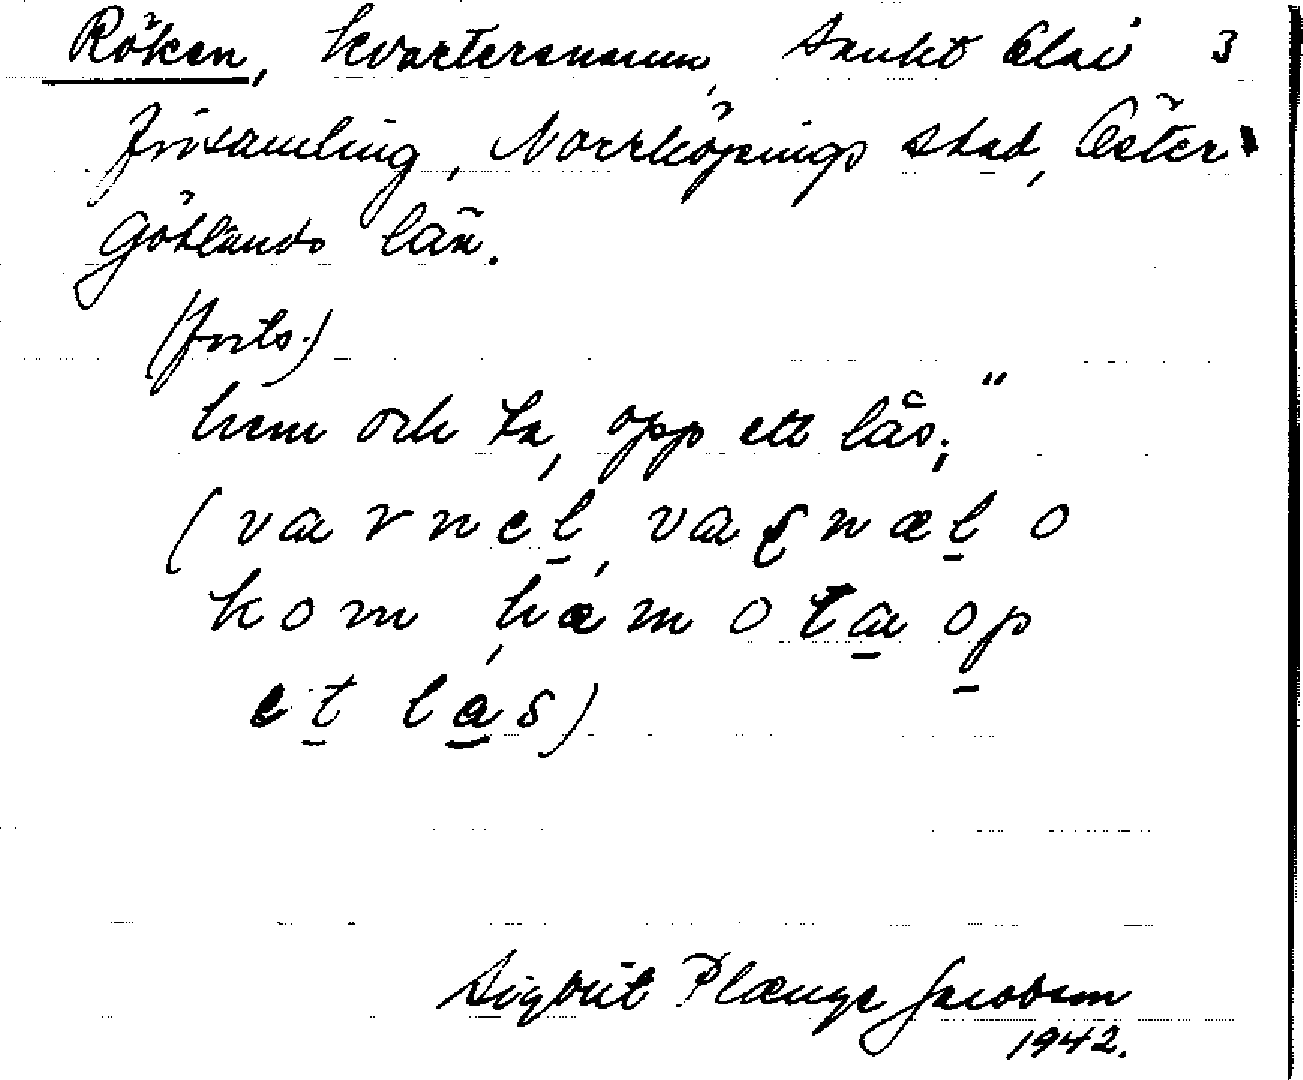 Röken, kvartersnamn, Sankt Olai 3
församling, Norrköpings stad, Öster-
götlands län.
(forts.)
hem och ta, opp ett lås;"
(varnel, vagnæl o
kom hæm o ta op
et lås)
Sigbrit Plænge Jacobson
1942.